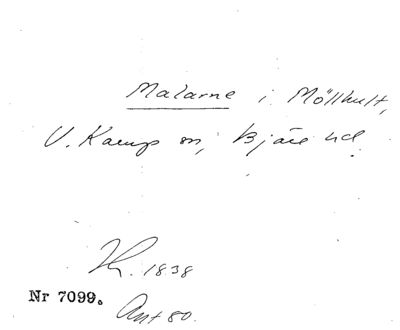 Malarne i Möllhult,
V. Karup sn, Bjäre hd.
1838
Nr 7099.
Ant 80.